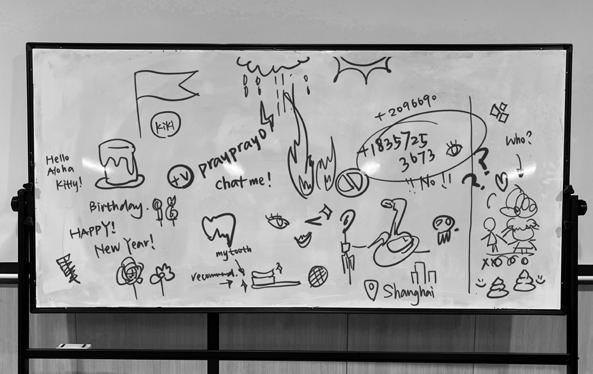 +2096690
KiKi
+1835725
3673
Who?
prayprayO
+V
Hello
Aloha
Kitty!
chat me!
!! No !!
??
Birthday.
HAPPY!
New Year!
my tooth
recommend.
Shanghai